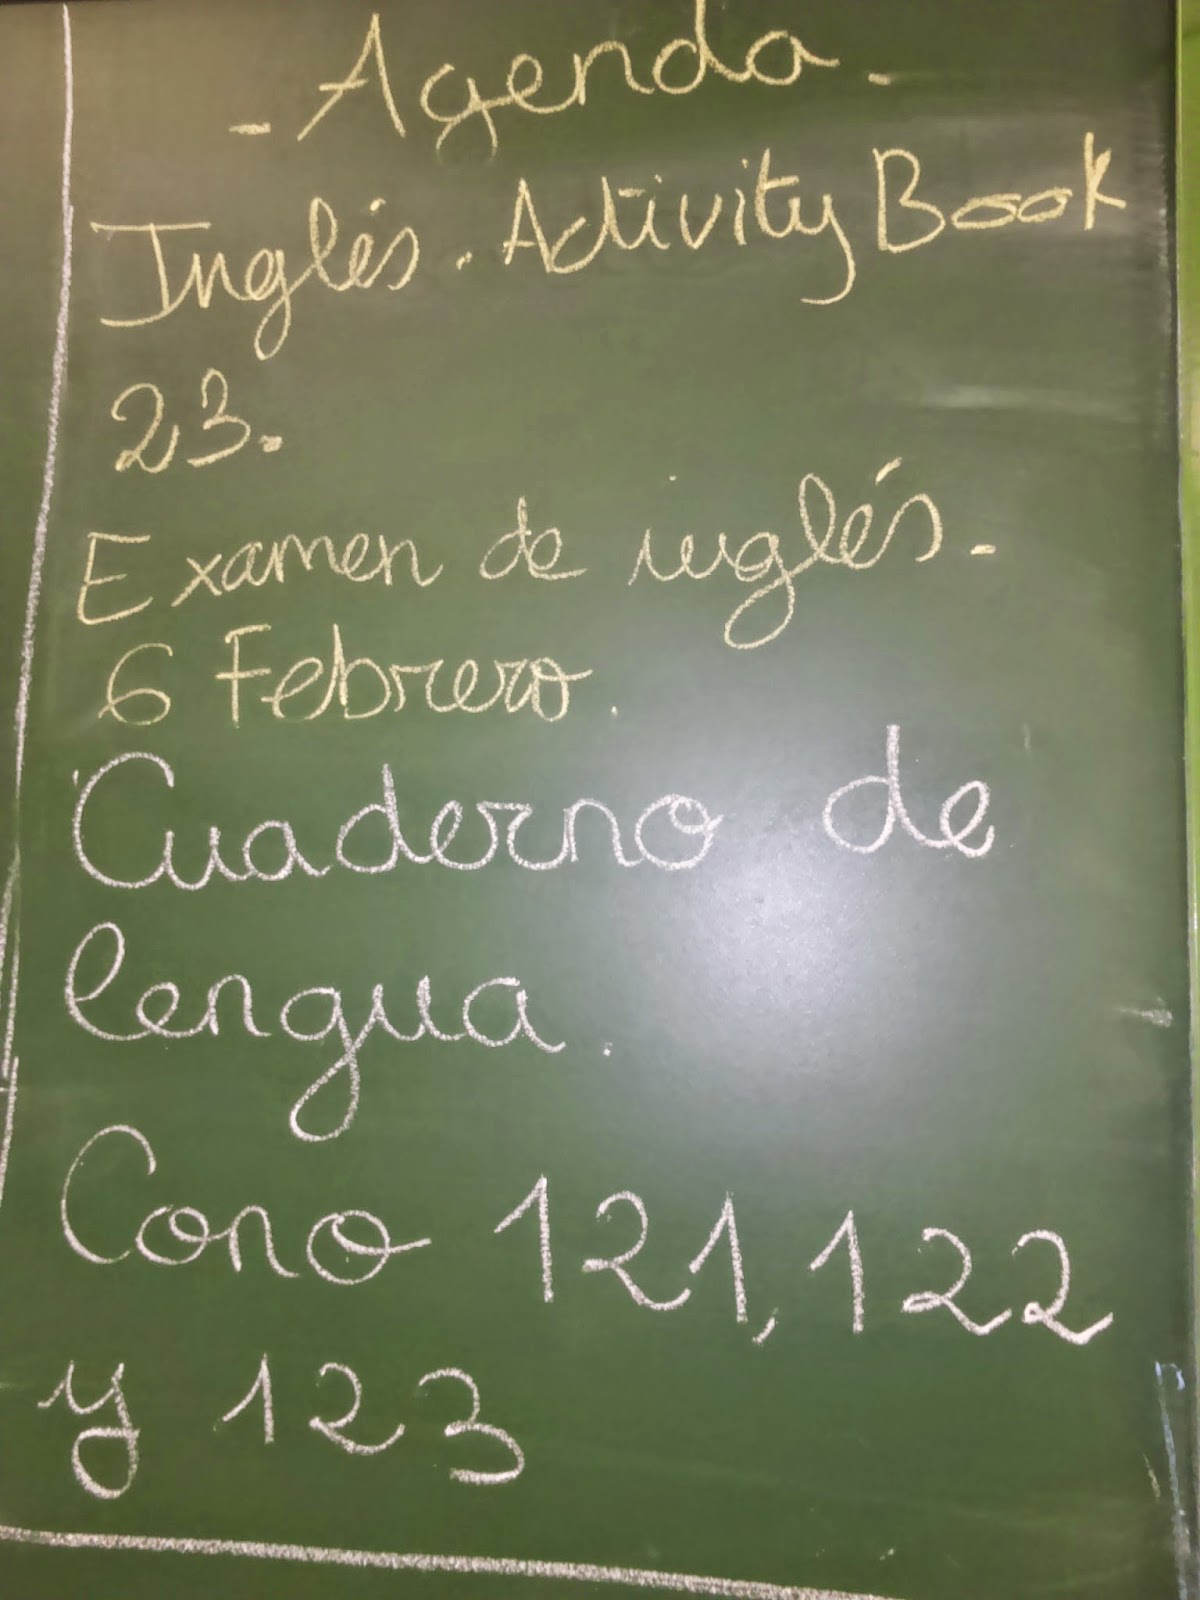 - Agenda -
Inglés. Activity Book
23.
Examen de inglés.
6 Febrero.
Cuaderno de
lengua.
Cono 121, 122
y 123